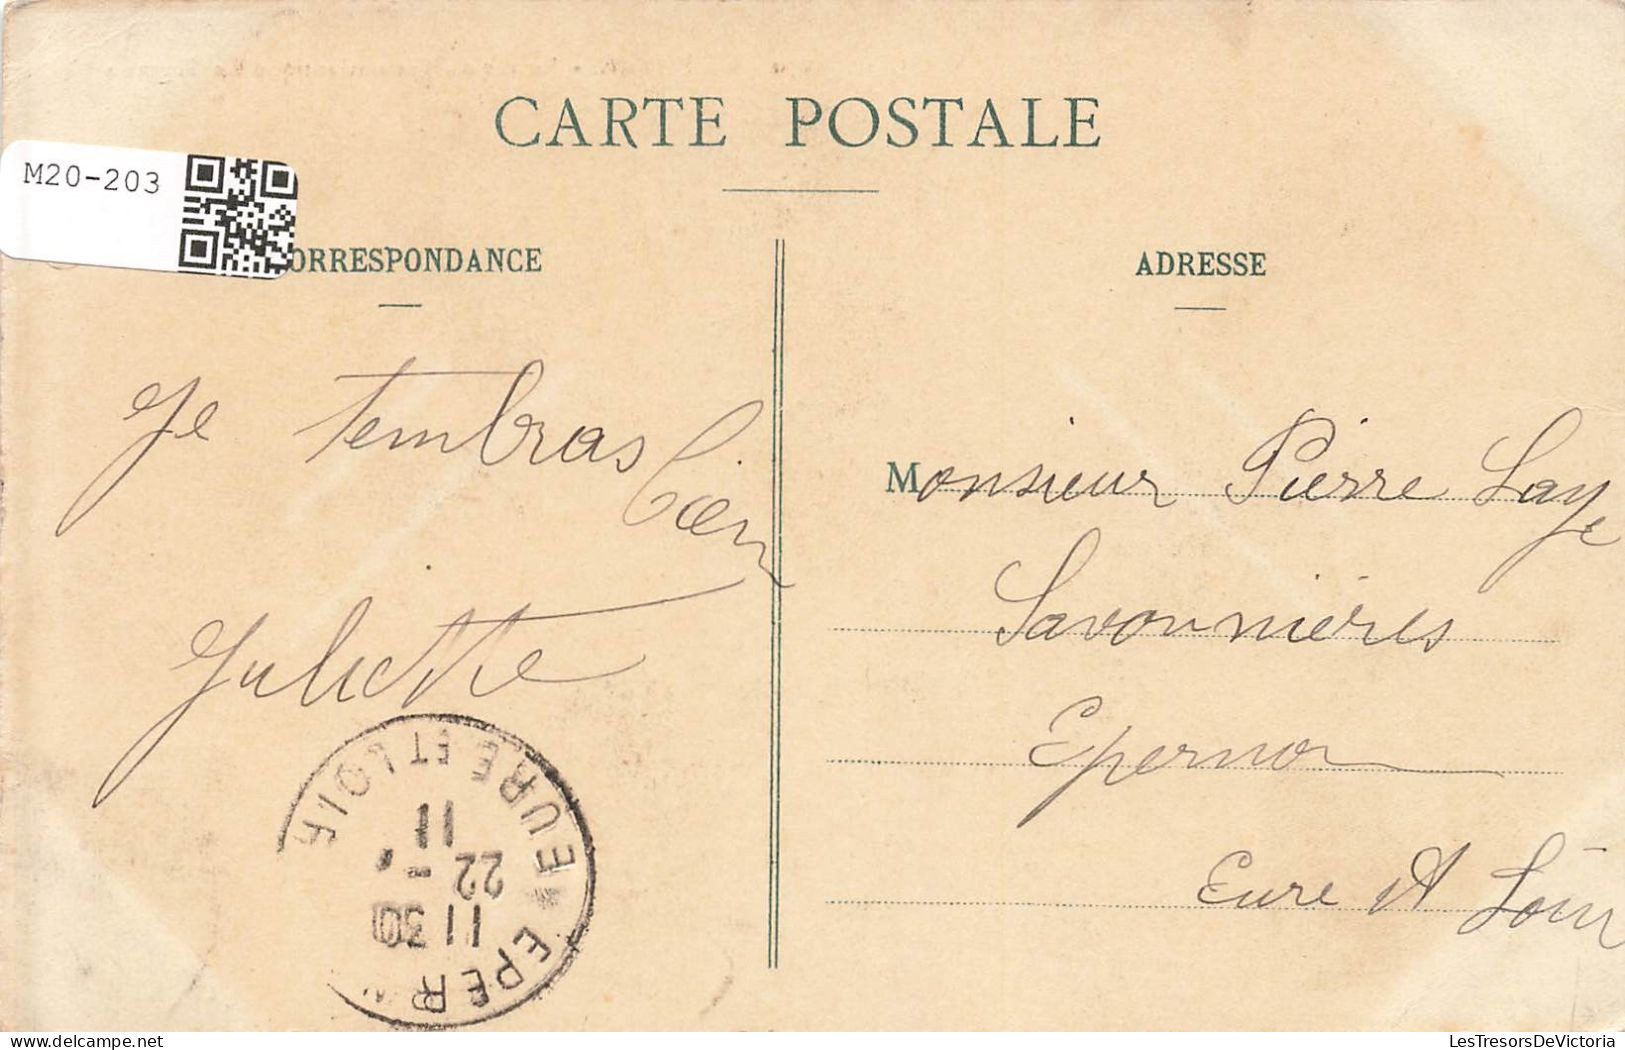 CARTE POSTALE
M20-203
ORRESPONDANCE
ADRESSE
Je tembras
bien
Juliette
Monsieur Pierre Laye
Savonnières
Epernon
Eure et Loir
EPER
EURE ET LOIR
11 30
22 -
11
LesTresorsDeVictoria